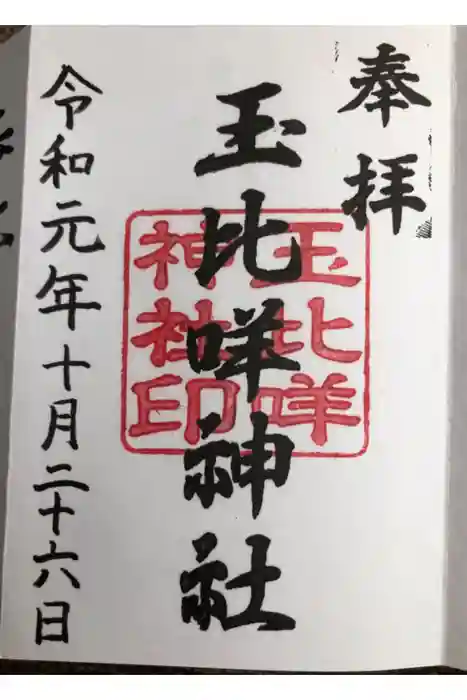 奉拝
玉比咩神社
玉比咩
神社印
令和元年十月二十六日